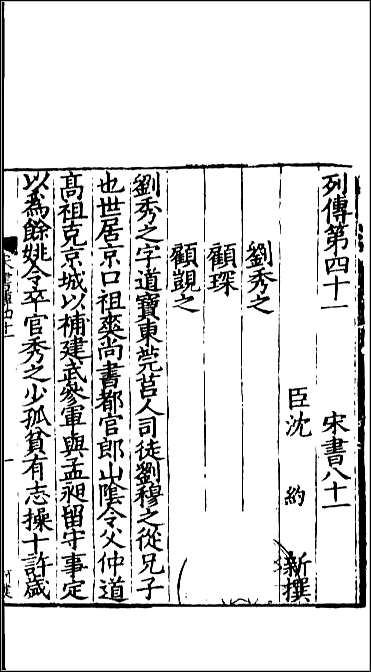 列傳第四十一　宋書八十一
臣沈　約　新撰
劉秀之
顧琛
顧覬之
劉秀之字道寶東莞莒人司徒劉穆之從兄子
也世居京口祖爽尚書都官郎山陰令父仲道
高祖克京城以補建武參軍與孟昶留守事定
以爲餘姚令卒官秀之少孤貧有志操十許歲